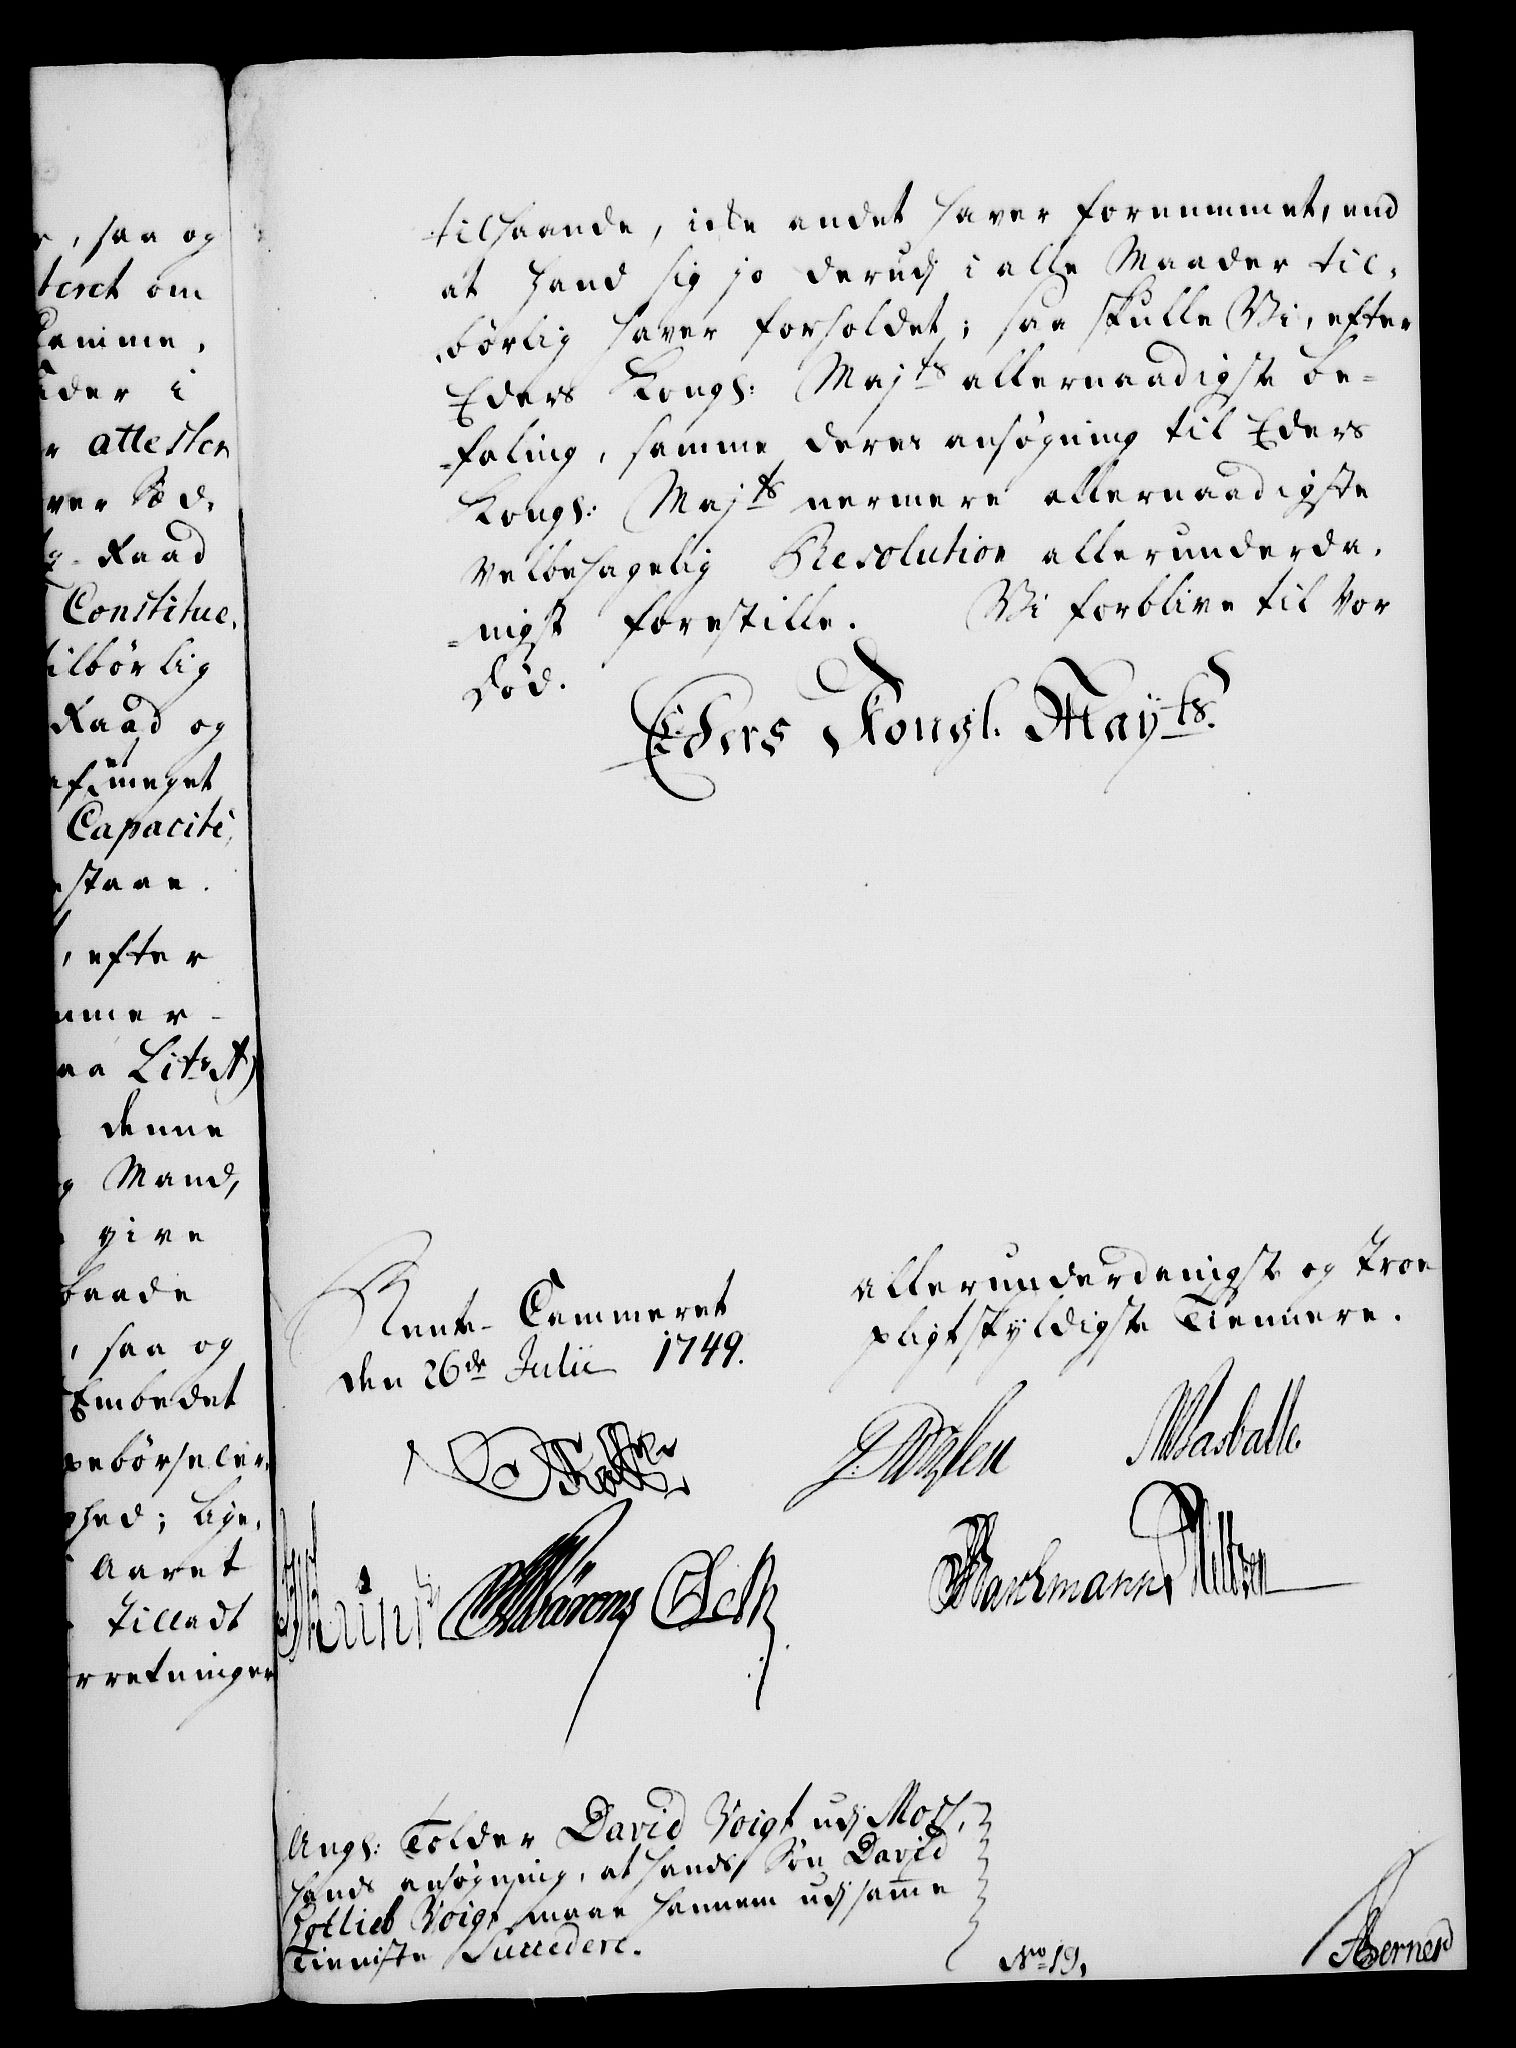 , saa og
teret om
Samme,
ider i
r attester
ver Sød,
g- Raad
Constitue,
tilbørlig
Raad og
meget
Capacité,
staae.
, efter
mmer-
aa Litr A)
denne
g Mand,
give
baade
, saa og
Embedet
; lige,
Aaret
tilladt
rretninger
tilhaande, icke andet haver fornemmet, end
at hand sig jo derudj i alle Maader til,
børlig haver forholdet; saa skulle Vi, efter
Eders Kongl: Majts allernaadigste be=
=faling, samme deres ansøgning til Eders
Kongl: Majts nermere allernaadigste
velbehagelig Resolution allerunderda,
=nigst forestille. Vi forblive til vor
död.
Eders Kongl. Mayts.
Rente-Cammeret
den 26de Julii 1749.
allerunderdanigste og troe
pligtskyldigste Tiennere.
Angl: Tolder David Voigt udj Moss,
hands ansøgning, at hands Søn David
Gottlieb Voigt maae hannem udj samme
Tienniste Succedere.
No 19,